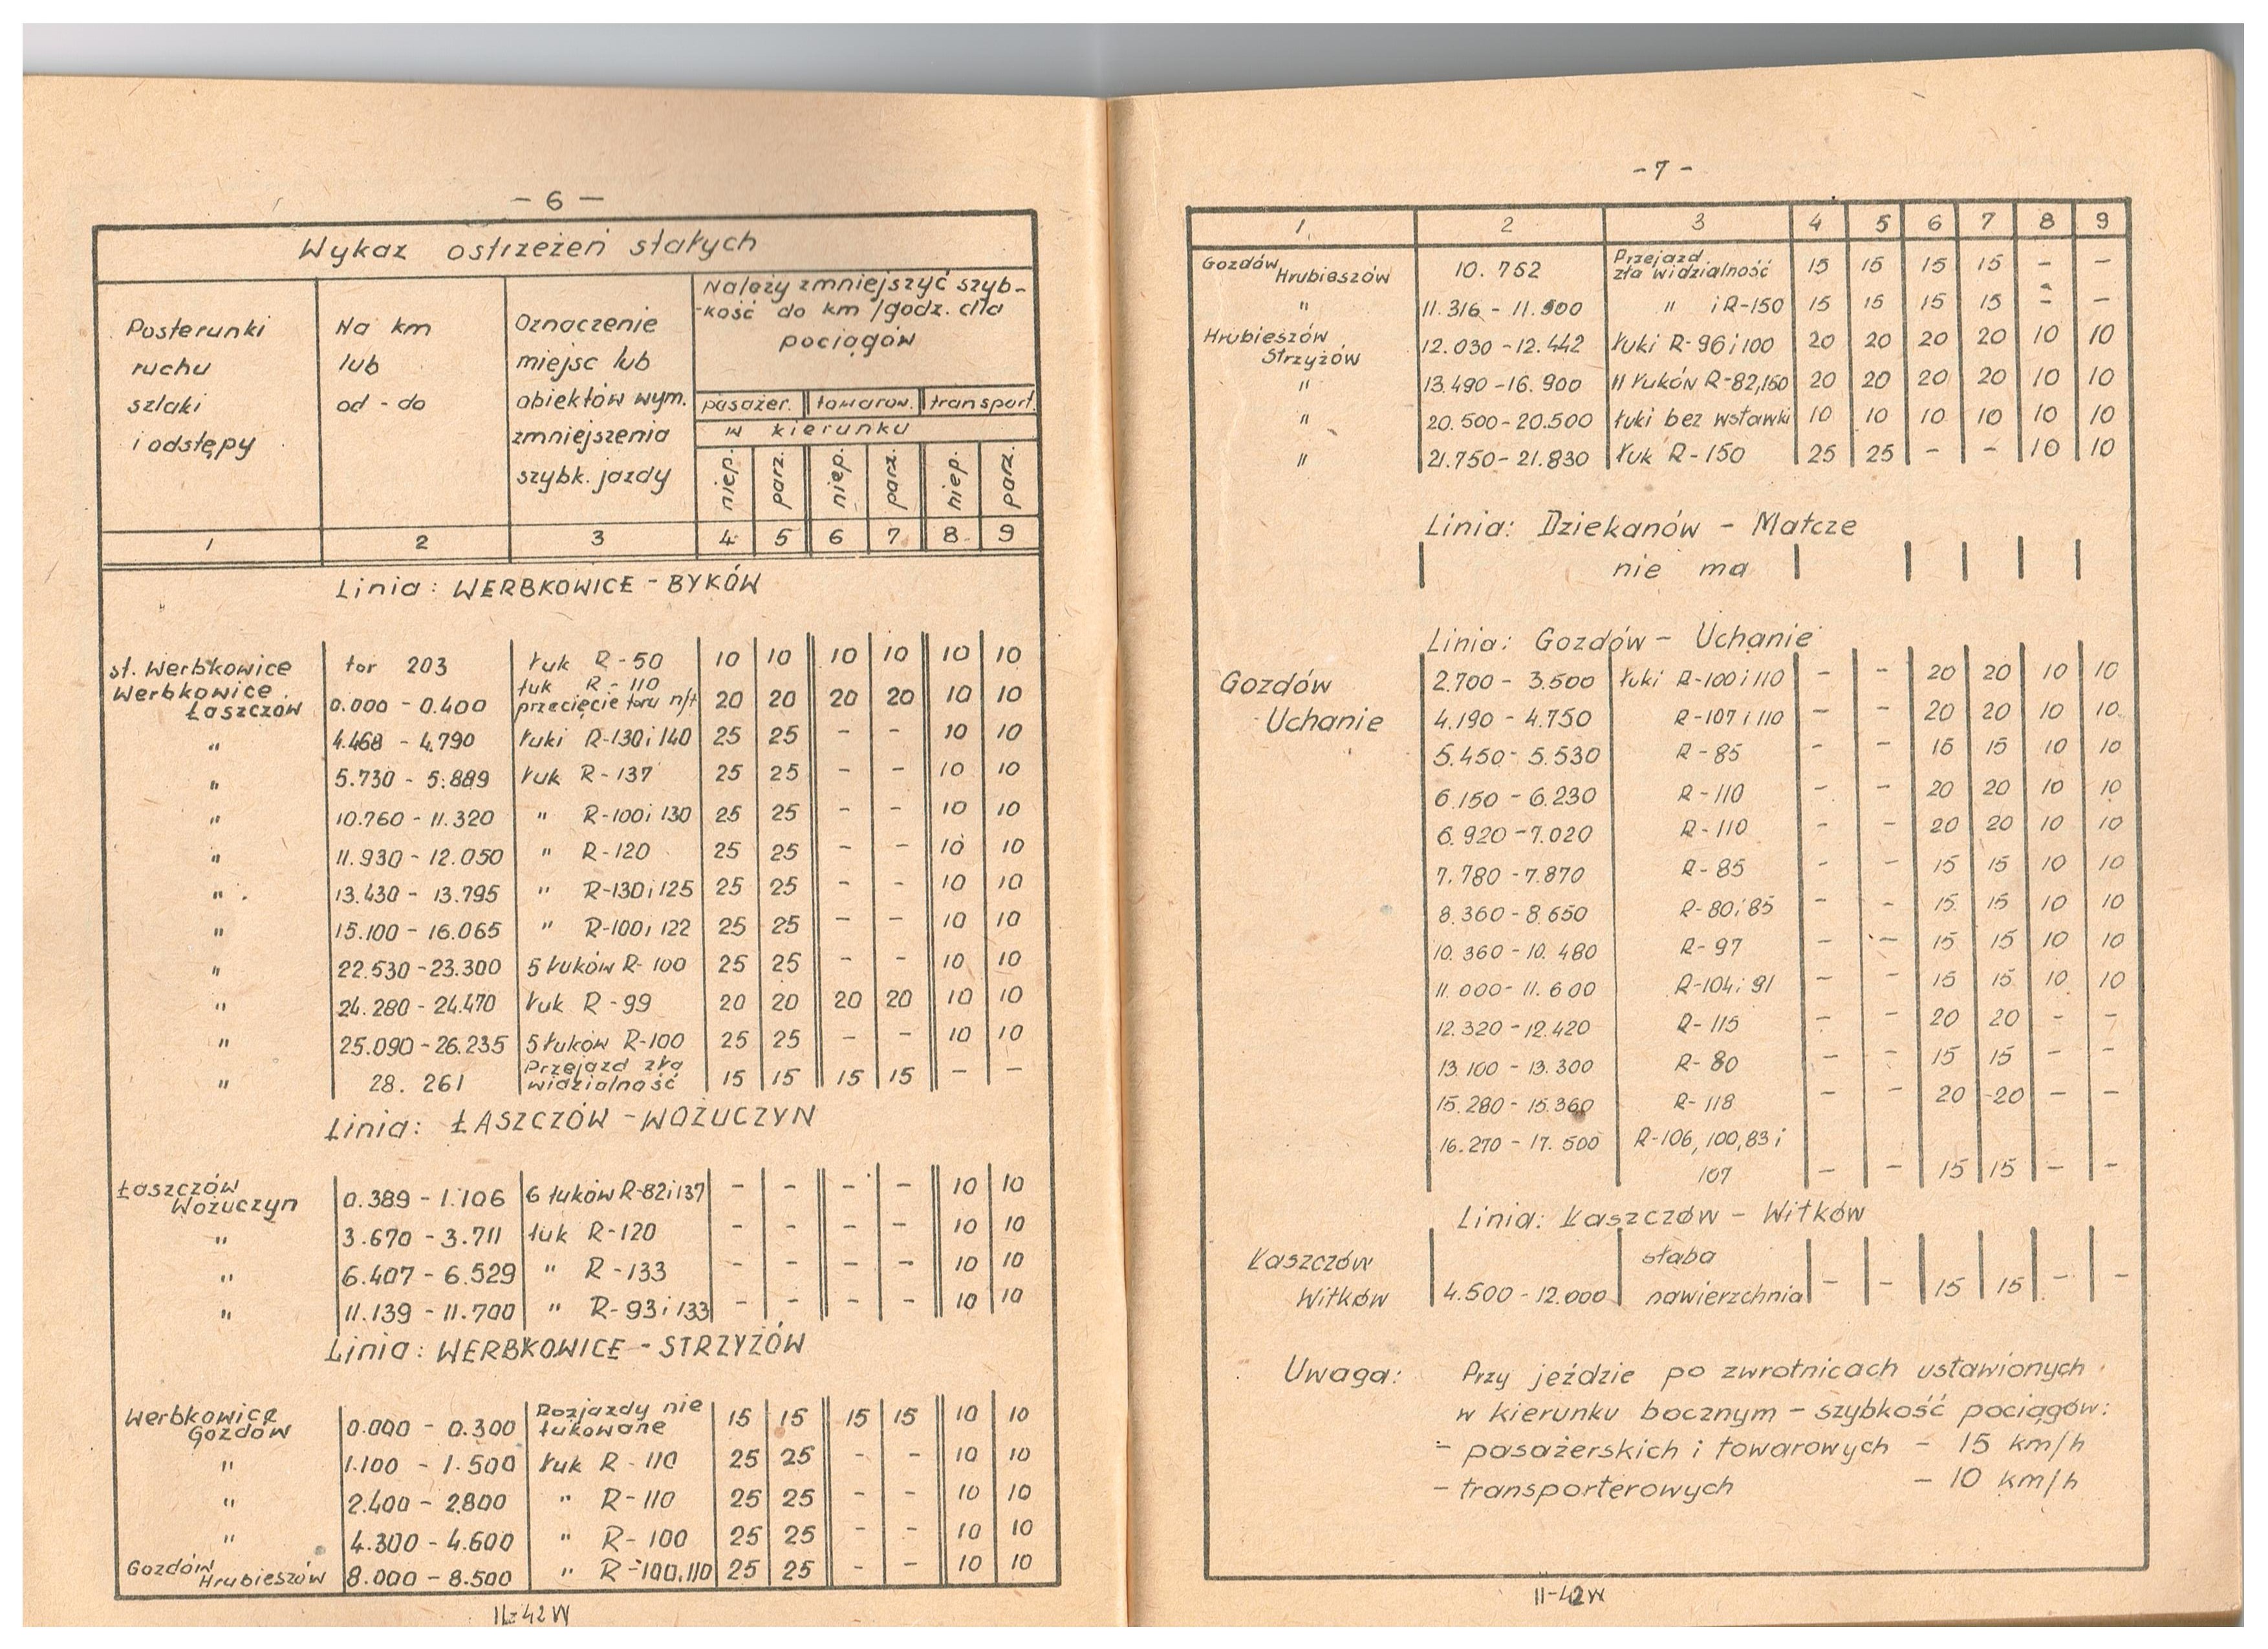 - 6 -
Wykaz ostrzeżeń stałych
Posterunki ruchu szlaki i odstępy
Na km lub od - do
Oznaczenie miejsc lub obiektów wym. zmniejszenia szybk. jazdy
Należy zmniejszyć szyb-
-kość do km/godz. dla
pociągów
pasażer. towarow. transport.
w kierunku
niep. parz. niep. parz. niep. parz.
1 2 3 4 5 6 7 8 9
Linia: WERBKOWICE - BYKÓW
st. Werbkowice tor 203 łuk R-50 10 10 10 10 10 10
łuk R-110
Werbkowice Łaszczów 0.000 - 0.400 przecięcie toru n/t 20 20 20 20 10 10
" 4.468 - 4.790 łuki R-130 i 140 25 25 - - 10 10
" 5.730 - 5.889 łuk R-137 25 25 - - 10 10
" 10.760 - 11.320 " R-100 i 130 25 25 - - 10 10
" 11.930 - 12.050 " R-120 25 25 - - 10 10
" 13.430 - 13.795 " R-130 i 125 25 25 - - 10 10
" 15.100 - 16.065 " R-100 i 122 25 25 - - 10 10
" 22.530 - 23.300 5 łuków R-100 25 25 - - 10 10
" 24.280 - 24.470 łuk R-99 20 20 20 20 10 10
" 25.090 - 26.235 5 łuków R-100 25 25 - - 10 10
Przejazd zła
" 28.261 widzialność 15 15 15 15 - -
Linia: ŁASZCZÓW - WOŻUCZYN
Łaszczów Wożuczyn 0.389 - 1.106 6 łuków R-82 i 137 - - - - 10 10
" 3.670 - 3.711 łuk R-120 - - - - 10 10
" 6.407 - 6.529 " R-133 - - - - 10 10
" 11.139 - 11.700 " R-93 i 133 - - - - 10 10
Linia: WERBKOWICE - STRZYŻÓW
Rozjazdy nie
Werbkowice Gozdów 0.000 - 0.300 łukowane 15 15 15 15 10 10
" 1.100 - 1.500 łuk R-110 25 25 - - 10 10
" 2.400 - 2.800 " R-110 25 25 - - 10 10
" 4.300 - 4.600 " R-100 25 25 - - 10 10
Gozdów Hrubieszów 8.000 - 8.500 " R-100,110 25 25 - - 10 10
II-42W
- 7 -
1 2 3 4 5 6 7 8 9
Przejazd
Gozdów Hrubieszów 10.752 zła widzialność 15 15 15 15 - -
" 11.316 - 11.500 " i R-150 15 15 15 15 - -
Hrubieszów Strzyżów 12.030 - 12.442 łuki R-96 i 100 20 20 20 20 10 10
" 13.490 - 16.900 11 łuków R-82,150 20 20 20 20 10 10
" 20.500 - 20.500 łuki bez wstawki 10 10 10 10 10 10
" 21.750 - 21.830 łuk R-150 25 25 - - 10 10
Linia: Dziekanów - Matcze
nie ma
Linia: Gozdów - Uchanie
Gozdów 2.700 - 3.500 łuki R-100 i 110 - - 20 20 10 10
Uchanie 4.190 - 4.750 R-107 i 110 - - 20 20 10 10
5.450 - 5.530 R-85 - - 15 15 10 10
6.150 - 6.230 R-110 - - 20 20 10 10
6.920 - 7.020 R-110 - - 20 20 10 10
7.780 - 7.870 R-85 - - 15 15 10 10
8.360 - 8.650 R-80 i 85 - - 15 15 10 10
10.360 - 10.480 R-97 - - 15 15 10 10
11.000 - 11.600 R-104 i 91 - - 15 15 10 10
12.320 - 12.420 R-115 - - 20 20 - -
13.100 - 13.300 R-80 - - 15 15 - -
15.280 - 15.360 R-118 - - 20 20 - -
16.270 - 17.500 R-106, 100, 83 i
107 - - 15 15 - -
Linia: Łaszczów - Witków
Łaszczów słaba
Witków 4.500 - 12.000 nawierzchnia - - 15 15 - -
Uwaga: Przy jeździe po zwrotnicach ustawionych
w kierunku bocznym - szybkość pociągów:
- pasażerskich i towarowych - 15 km/h
- transporterowych - 10 km/h
II-42W